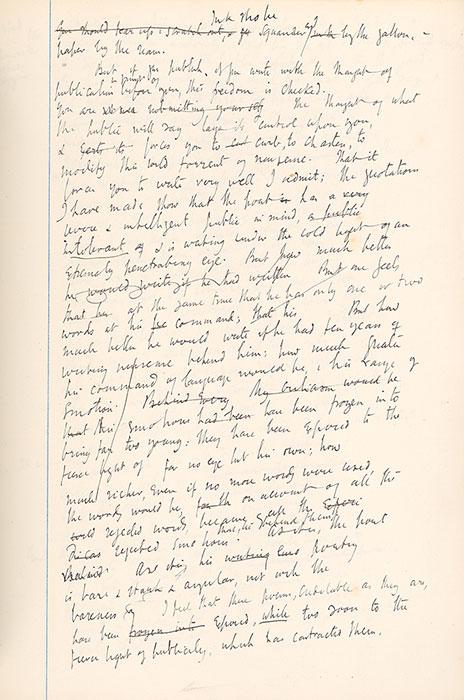 Ink should
You should tear up, & scratch out, & squander ink by the gallon, -
paper by the ream.
But if you publish, if you write with the thought of
publication before you, this freedom is checked.
You are submitting yourself The thought of what
the public will say lays its control upon you,
& forces you to curb, to chasten, to
modify this wild torrent of nonsense. That it
forces you to write very well I admit; the quotations
I have made show that the poet has a very
severe & intelligent public in mind, a public
intolerant of & is writing under the cold light of an
extremely penetrating eye. But how much better
he would write if he had written But one feels
that at the same time that he has only one or two
words at his command; that his But how
much better he would write if he had ten years of
writing nonsense behind him; how much greater
his command of language would be, & his range of
emotion. Behind every My criticism would be
that his emotions had been frozen into
being far too young: they have been exposed to the
fierce light of for no eye but his own; how
much richer, even if no more words were used,
the words would be, on account of all the
rejected words because all the
rejected emotions behind them.
As it is, the poet
As it is, his writing poetry
is bare & stark & angular, not with the
bareness of I feel that these poems, as they are,
have been frozen into exposed, while too soon to the
fierce light of publicity, which has contracted them.